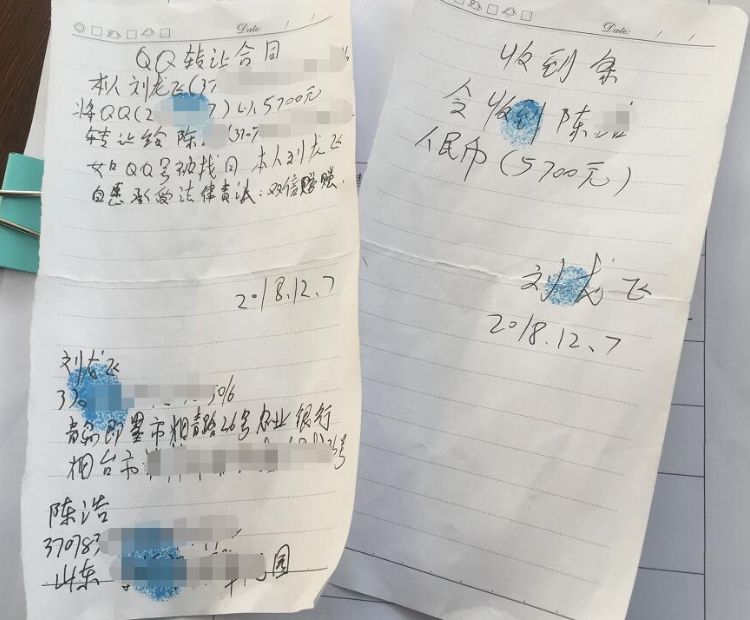 Date: / /
QQ转让合同
本人刘龙飞(37
将QQ(2 7)以5700元
转让给陈 (370
如QQ号被找回 本人刘龙飞
自愿承受法律责任.双倍赔赚.
2018.12.7
刘龙飞
370 306
青岛即墨市烟青路26号农业银行
烟台市 号
陈浩
370783
山东 园
Date: / /
收到条
今收到陈
人民币(5700元)
刘龙飞
2018.12.7